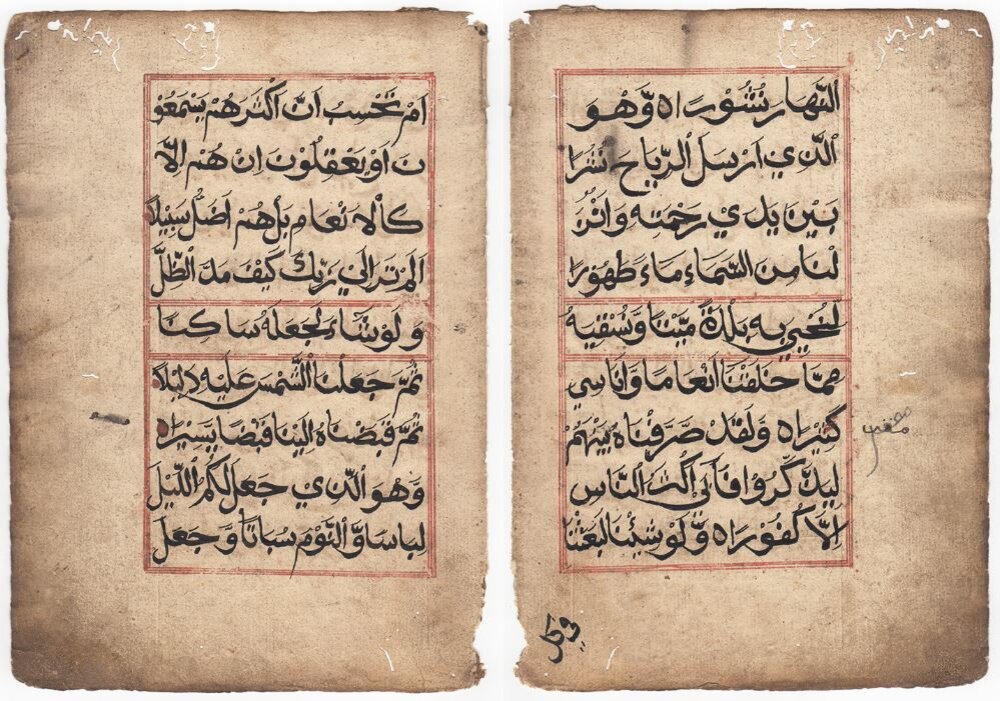 اَمْ تَحْسَبُ اَنَّ اَكْثَرَهُمْ يَسْمَعُوْ
نَ اَوْ يَعْقِلُوْنَ اِنْ هُمْ اِلَّا
كَالْاَنْعَامِ بَلْ هُمْ اَضَلُّ سَبِيْلًا
اَلَمْ تَرَ اِلٰى رَبِّكَ كَيْفَ مَدَّ الظِّلَّ
وَلَوْ شَاءَ لَجَعَلَهُ سَاكِنًا
ثُمَّ جَعَلْنَا الشَّمْسَ عَلَيْهِ دَلِيْلًا
ثُمَّ قَبَضْنَاهُ اِلَيْنَا قَبْضًا يَسِيْرًاه
وَهُوَ الَّذِي جَعَلَ لَكُمُ اللَّيْلَ
لِبَاسًا وَّالنَّوْمَ سُبَاتًا وَّجَعَلَ
النَّهَارَ نُشُوْرًاه وَّهُوَ
الَّذِي اَرْسَلَ الرِّيَاحَ نُشْرًا
بَيْنَ يَدَيْ رَحْمَتِهِ وَاَنْزَ
لْنَا مِنَ السَّمَاءِ مَاءً طَهُوْرًا
لِنُحْيِيَ بِهِ بَلْدَةً مَّيْتًا وَّنُسْقِيَهُ
مِمَّا خَلَقْنَا اَنْعَامًا وَّاَنَاسِيَّ
كَثِيْرًاه وَلَقَدْ صَرَّفْنَاهُ بَيْنَهُمْ
لِيَذَّكَّرُوْا فَاَبٰى اَكْثَرُ النَّاسِ
اِلَّا كُفُوْرًاه وَّلَوْ شِئْنَا لَبَعَثْنَا